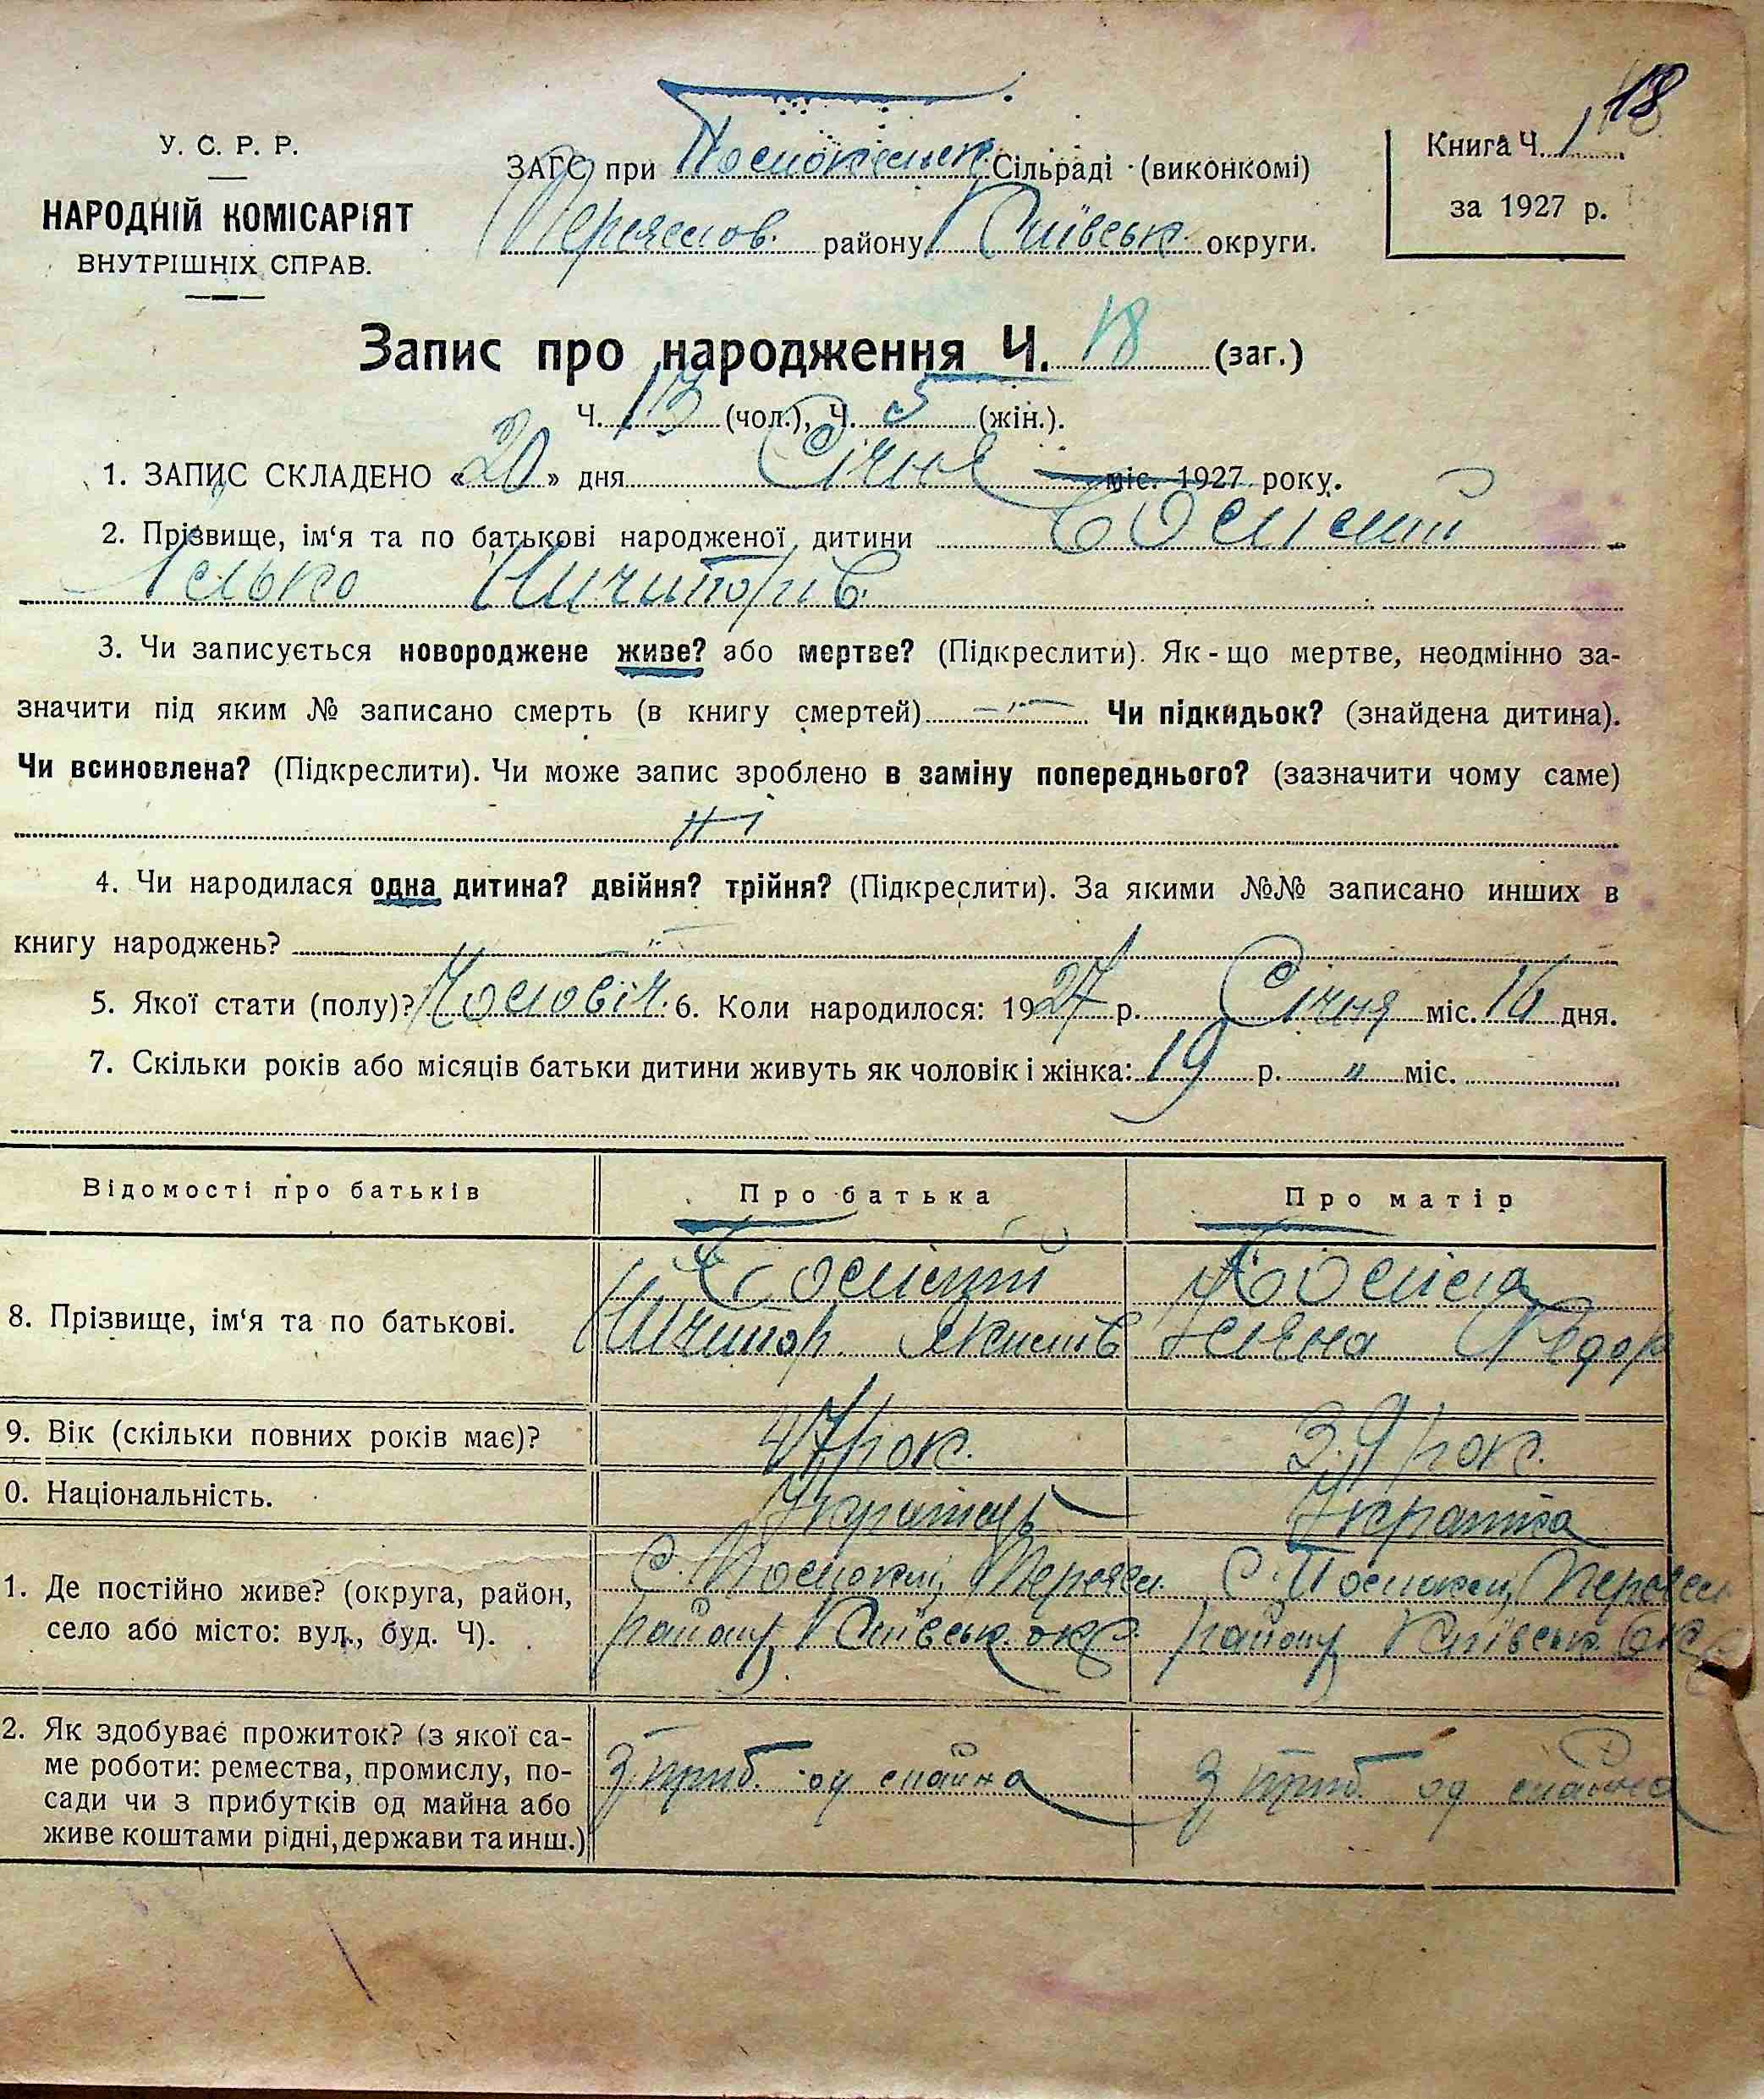 18
У. С. Р. Р.
НАРОДНІЙ КОМІСАРІЯТ
ВНУТРІШНІХ СПРАВ.
ЗАГС при Сільраді (виконкомі)
Переяслов. району Київськ. округи.
Книга Ч. 1
за 1927 р.
Запис про народження Ч. 18 (заг.)
Ч. 13 (чол.), Ч. 5 (жін.).
1. ЗАПИС СКЛАДЕНО «20» дня Січня міс. 1927 року.
2. Прізвище, ім‘я та по батькові народженої дитини
Ничипорів.
3. Чи записується новороджене живе? або мертве? (Підкреслити). Як-що мертве, неодмінно за-
значити під яким № записано смерть (в книгу смертей) Чи підкидьок? (знайдена дитина).
Чи всиновлена? (Підкреслити). Чи може запис зроблено в заміну попереднього? (зазначити чому саме)
Ні
4. Чи народилася одна дитина? двійня? трійня? (Підкреслити). За якими №№ записано инших в
книгу народжень? „
5. Якої стати (полу)? Чоловіч. 6. Коли народилося: 1927 р. Січня міс. 16 дня.
7. Скільки років або місяців батьки дитини живуть як чоловік і жінка: 19 р. „ міс.
Відомості про батьків Про батька Про матір
8. Прізвище, ім‘я та по батькові.
Ничипор Якимів Федор
9. Вік (скільки повних років має)? 47 рок. 39 рок.
0. Національність. Українець Українка
1. Де постійно живе? (округа, район,
село або місто: вул., буд. Ч).
С. Переясл. С. Переясл
району Київськ. окр. району Київськ. окр
2. Як здобуває прожиток? (з якої са-
ме роботи: ремества, промислу, по-
сади чи з прибутків од майна або
живе коштами рідні, держави та инш.)
З приб. од майна З приб. од майна